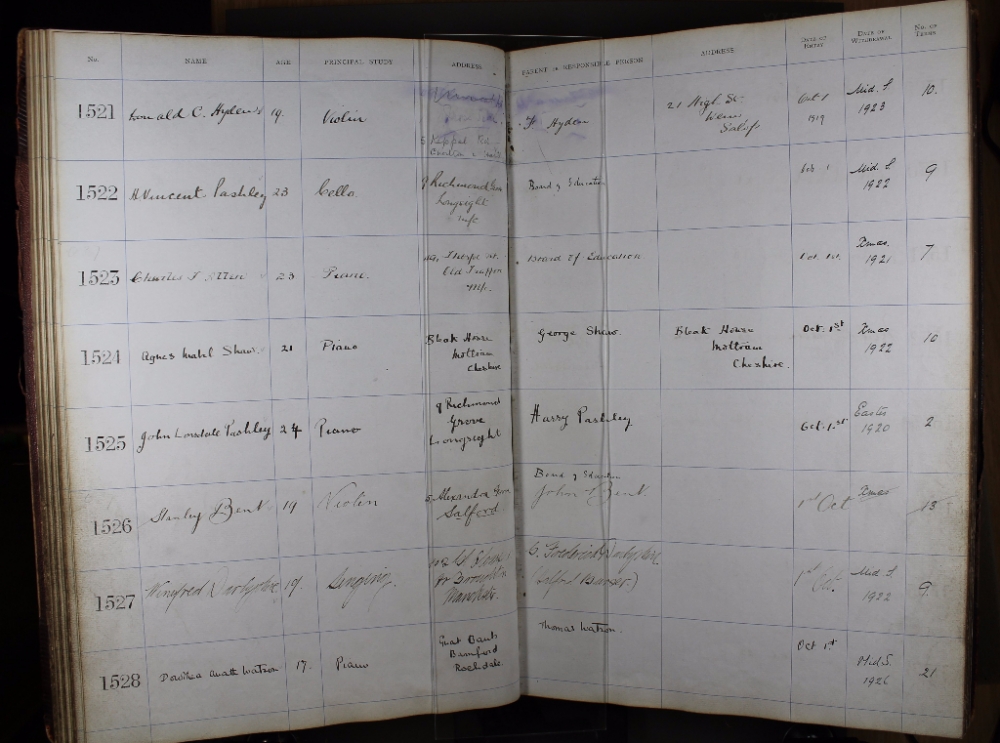 No. NAME AGE PRINCIPAL STUDY ADDRESS PARENT or RESPONSIBLE PERSON ADDRESS DATE OF ENTRY DATE OF WITHDRAWAL No. OF TERMS
1521 Ronald C. Hyden 19. Violin F. Hyden 21 High St. Oct 1 Mid. S 10.
Wem 1919 1923
Salop
1522 H Vincent Pashley 23 Cello. 9 Richmond Grove Board of Education Oct 1 Mid. S 9
Longsight 1922
M/c
1523 Charles 23 Piano. Board of Education Oct. 1st. Xmas. 7
Old Trafford 1921
M/c.
1524 Agnes Mabel Shaw. 21 Piano Bleak House George Shaw. Bleak House Oct. 1st Xmas 10
Mottram Mottram 1922
Cheshire Cheshire.
1525 John Lonsdale Pashley 24 Piano 9 Richmond Harry Pashley Oct. 1st Easter 2
Grove 1920
Longsight
1526 Stanley Bent 19 Violin 5 Alexandra Board of Education 1st Oct Xmas 13
Salford. John Bent.
1527 Winifred Darbyshire 19. Singing. Frederick Darbyshire 1st Oct. Mid S 9.
Manchester. 1922
1528 Dorothea Watson 17. Piano Thomas Watson. Oct 1st Mid S. 21
Bamford 1926
Rochdale.